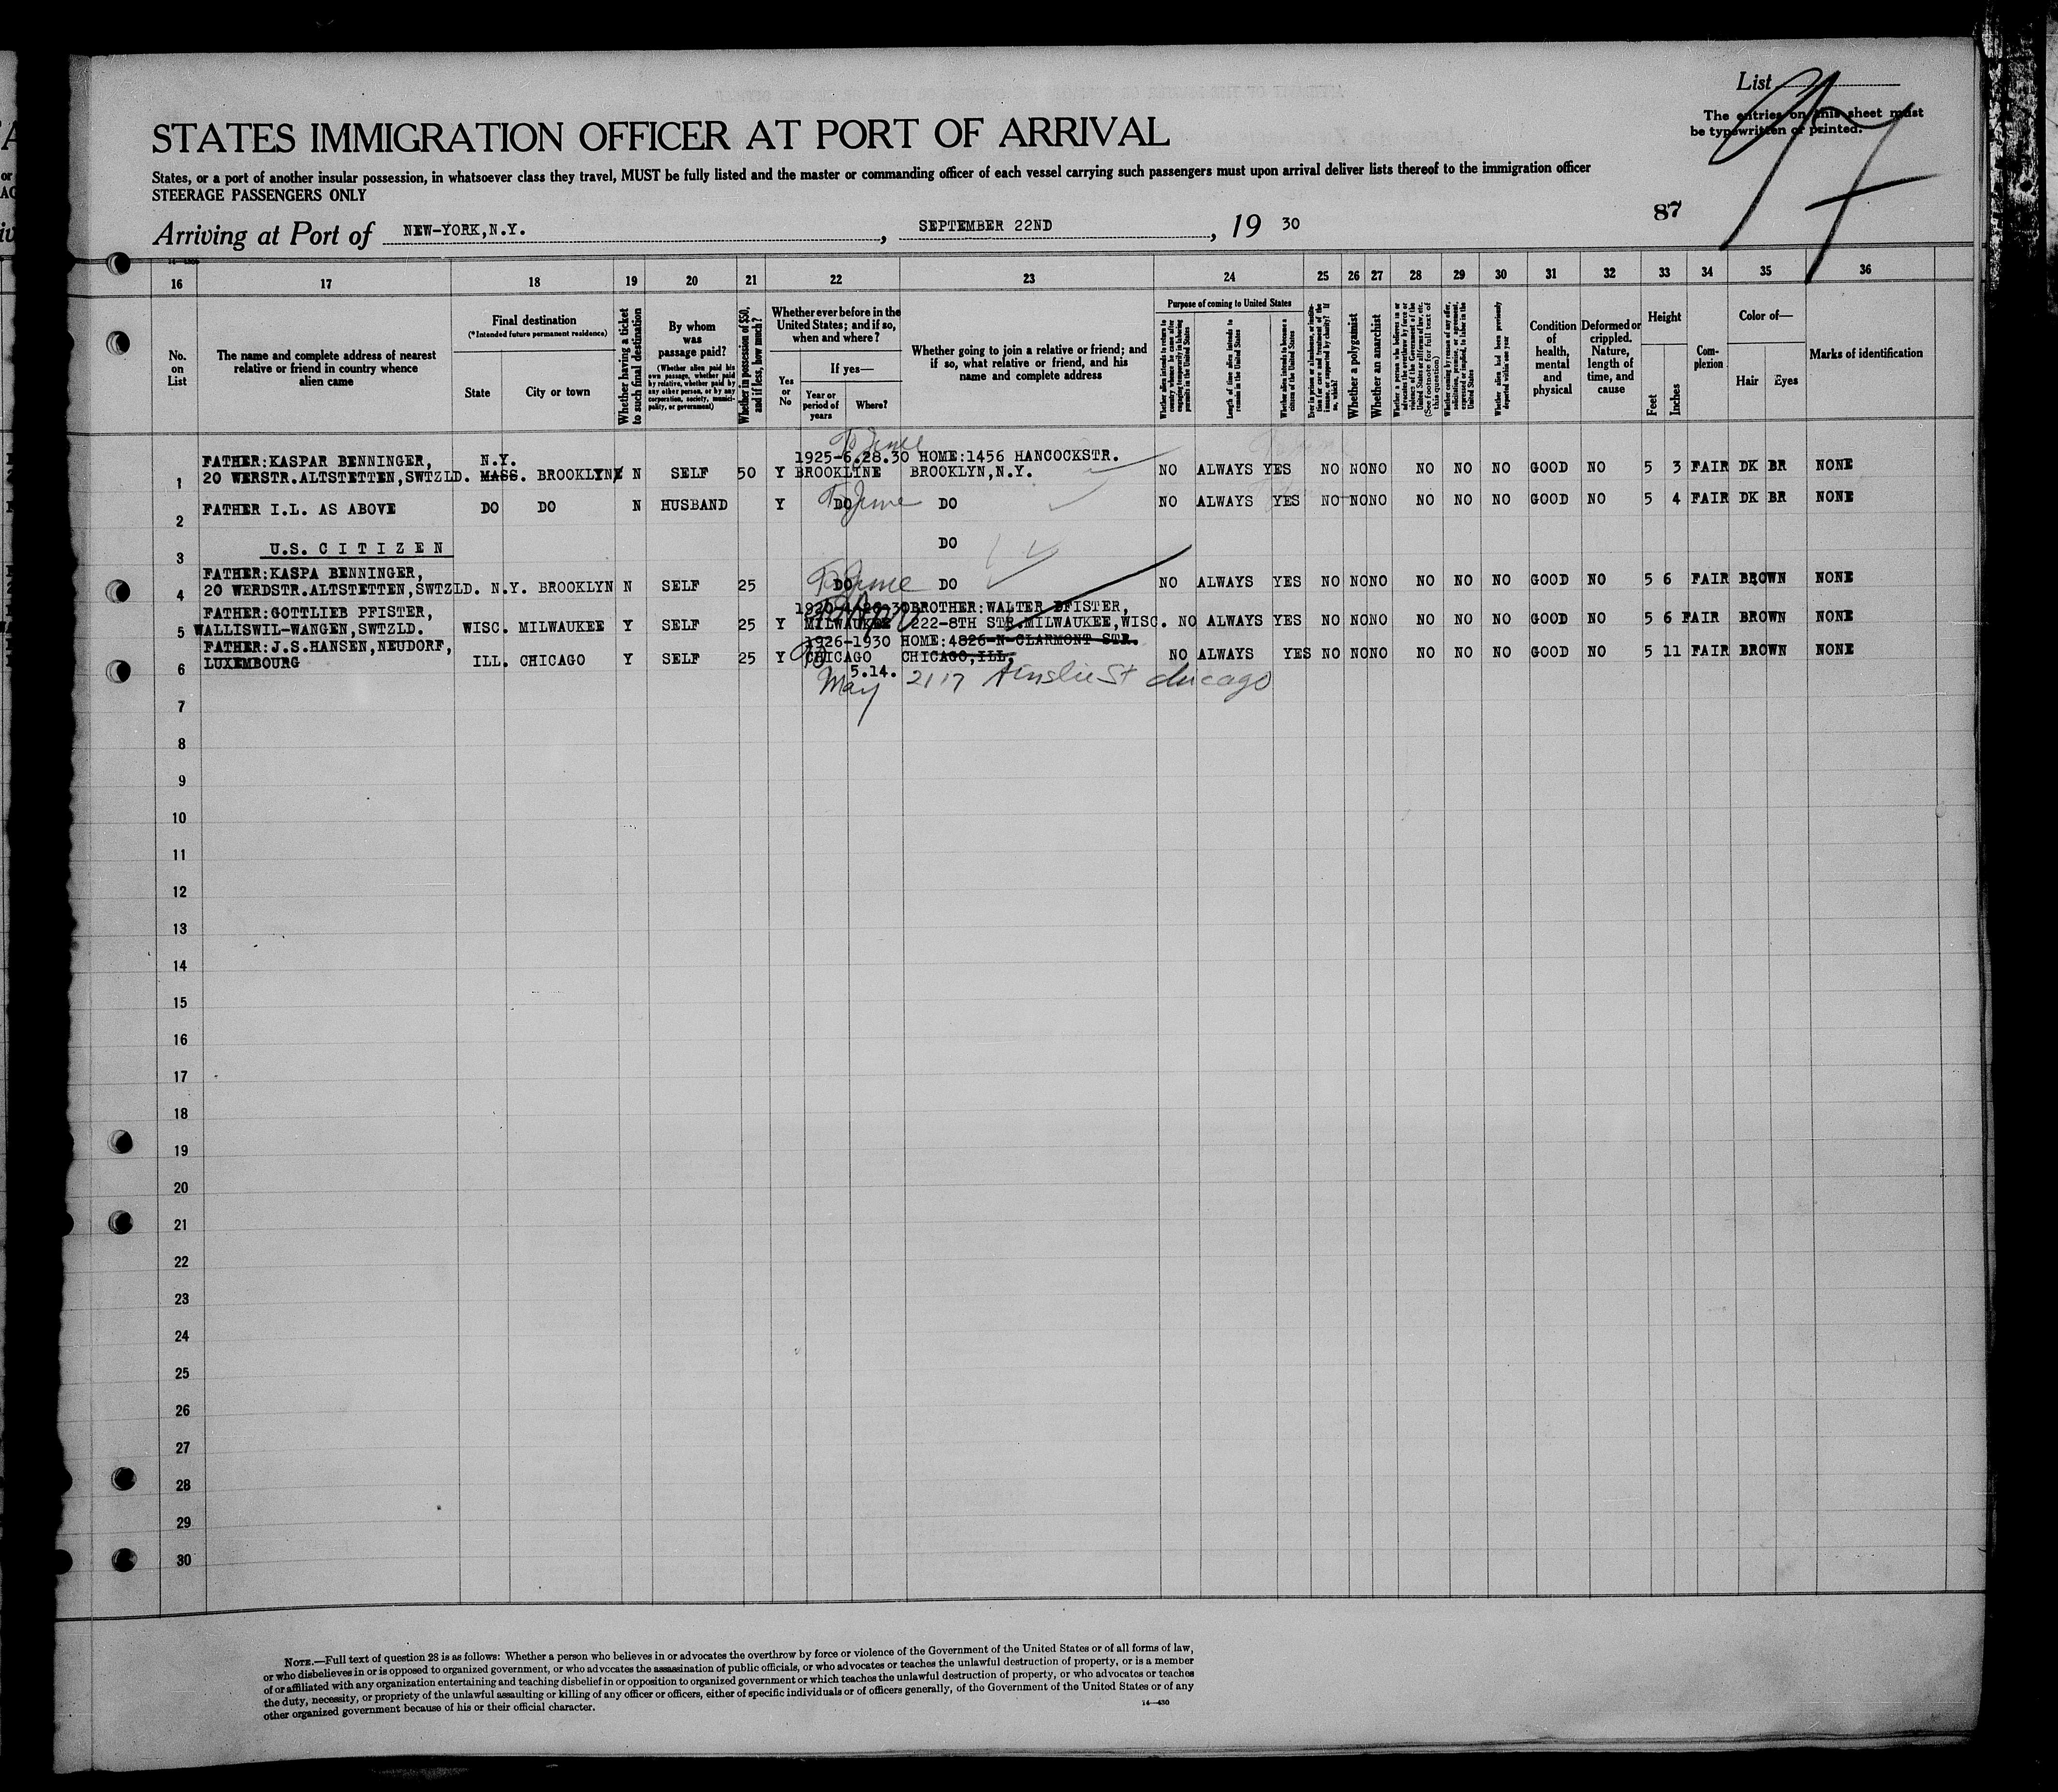 List
The entries on this sheet must
be typewritten or printed.
STATES IMMIGRATION OFFICER AT PORT OF ARRIVAL
States, or a port of another insular possession, in whatsoever class they travel, MUST be fully listed and the master or commanding officer of each vessel carrying such passengers must upon arrival deliver lists thereof to the immigration officer
STEERAGE PASSENGERS ONLY
87
Arriving at Port of NEW-YORK,N.Y. , SEPTEMBER 22ND , 19 30
16 17 18 19 20 21 22 23 24 25 26 27 28 29 30 31 32 33 34 35 36
No. on List
The name and complete address of nearest relative or friend in country whence alien came
Final destination
(*Intended future permanent residence)
State
City or town
Whether having a ticket to such final destination
By whom was passage paid?
(Whether alien paid his own passage, whether paid by relative, whether paid by any other person, or by any corporation, society, municipality, or government)
Whether in possession of $50, and if less, how much?
Whether ever before in the United States; and if so, when and where?
Yes or No
If yes—
Year or period of years
Where?
Whether going to join a relative or friend; and if so, what relative or friend, and his name and complete address
Purpose of coming to United States
Length of time alien intends to remain in the United States
Whether alien intends to become a citizen of the United States
Whether a polygamist
Whether an anarchist
Condition of health, mental and physical
Deformed or crippled. Nature, length of time, and cause
Height
Feet
Inches
Complexion
Color of—
Hair
Eyes
Marks of identification
FATHER:KASPAR BENNINGER, N.Y. 1925-6.28.30 HOME:1456 HANCOCKSTR.
1 20 WERSTR.ALTSTETTEN,SWTZLD. MASS. BROOKLYN N SELF 50 Y BROOKLINE BROOKLYN,N.Y. NO ALWAYS YES NO NO NO NO NO NO GOOD NO 5 3 FAIR DK BR NONE
2 FATHER I.L. AS ABOVE DO DO N HUSBAND Y DO June DO NO ALWAYS YES NO NO NO NO NO NO GOOD NO 5 4 FAIR DK BR NONE
3 U.S. C I T I Z E N DO
FATHER:KASPA BENNINGER,
4 20 WERDSTR.ALTSTETTEN,SWTZLD. N.Y. BROOKLYN N SELF 25 DO June DO NO ALWAYS YES NO NO NO NO NO NO GOOD NO 5 6 FAIR BROWN NONE
FATHER:GOTTLIEB PFISTER, BROTHER:WALTER PFISTER,
5 WALLISWIL-WANGEN,SWTZLD. WISC. MILWAUKEE Y SELF 25 Y MILWAUKEE 222-8TH STR.MILWAUKEE,WISC. NO ALWAYS YES NO NO NO NO NO NO GOOD NO 5 6 FAIR BROWN NONE
FATHER:J.S.HANSEN,NEUDORF, 1926-1930 HOME:4826-N-CLARMONT STR.
6 LUXEMBOURG ILL. CHICAGO Y SELF 25 Y CHICAGO CHICAGO,ILL, NO ALWAYS YES NO NO NO NO NO NO GOOD NO 5 11 FAIR BROWN NONE
5.14.
May 2117 Ainslie St chicago
7
8
9
10
11
12
13
14
15
16
17
18
19
20
21
22
23
24
25
26
27
28
29
30
NOTE.—Full text of question 28 is as follows: Whether a person who believes in or advocates the overthrow by force or violence of the Government of the United States or of all forms of law,
or who disbelieves in or is opposed to organized government, or who advocates the assassination of public officials, or who advocates or teaches the unlawful destruction of property, or is a member
of or affiliated with any organization entertaining and teaching disbelief in or opposition to organized government or which teaches the unlawful destruction of property, or who advocates or teaches
the duty, necessity, or propriety of the unlawful assaulting or killing of any officer or officers, either of specific individuals or of officers generally, of the Government of the United States or of any
other organized government because of his or their official character.
14—430